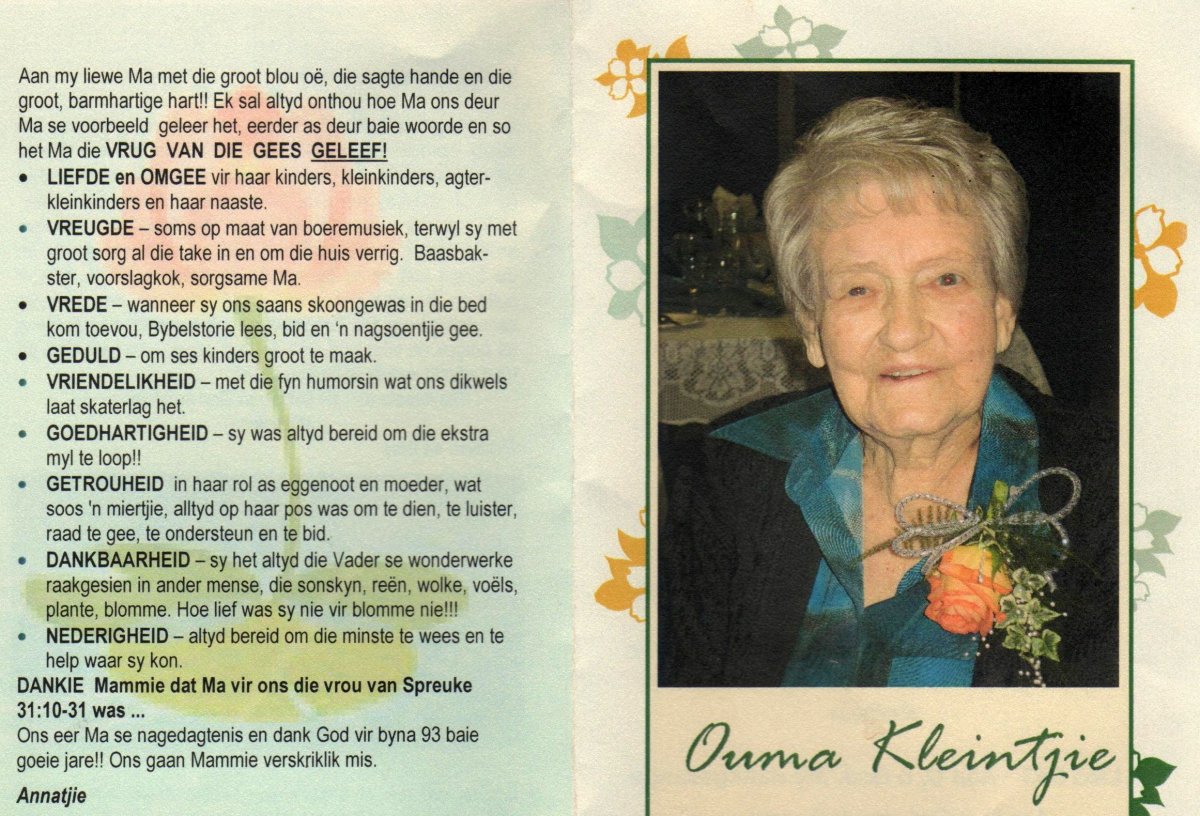 Aan my liewe Ma met die groot blou oë, die sagte hande en die
groot, barmhartige hart!! Ek sal altyd onthou hoe Ma ons deur
Ma se voorbeeld geleer het, eerder as deur baie woorde en so
het Ma die VRUG VAN DIE GEES GELEEF!
• LIEFDE en OMGEE vir haar kinders, kleinkinders, agter-
kleinkinders en haar naaste.
• VREUGDE – soms op maat van boeremusiek, terwyl sy met
groot sorg al die take in en om die huis verrig. Baasbak-
ster, voorslagkok, sorgsame Ma.
• VREDE – wanneer sy ons saans skoongewas in die bed
kom toevou, Bybelstorie lees, bid en ‘n nagsoentjie gee.
• GEDULD – om ses kinders groot te maak.
• VRIENDELIKHEID – met die fyn humorsin wat ons dikwels
laat skaterlag het.
• GOEDHARTIGHEID – sy was altyd bereid om die ekstra
myl te loop!!
• GETROUHEID in haar rol as eggenoot en moeder, wat
soos 'n miertjie, alltyd op haar pos was om te dien, te luister,
raad te gee, te ondersteun en te bid.
• DANKBAARHEID – sy het altyd die Vader se wonderwerke
raakgesien in ander mense, die sonskyn, reën, wolke, voëls,
plante, blomme. Hoe lief was sy nie vir blomme nie!!!
• NEDERIGHEID – altyd bereid om die minste te wees en te
help waar sy kon.
DANKIE Mammie dat Ma vir ons die vrou van Spreuke
31:10-31 was ...
Ons eer Ma se nagedagtenis en dank God vir byna 93 baie
goeie jare!! Ons gaan Mammie verskriklik mis.
Annatjie
Ouma Kleintjie